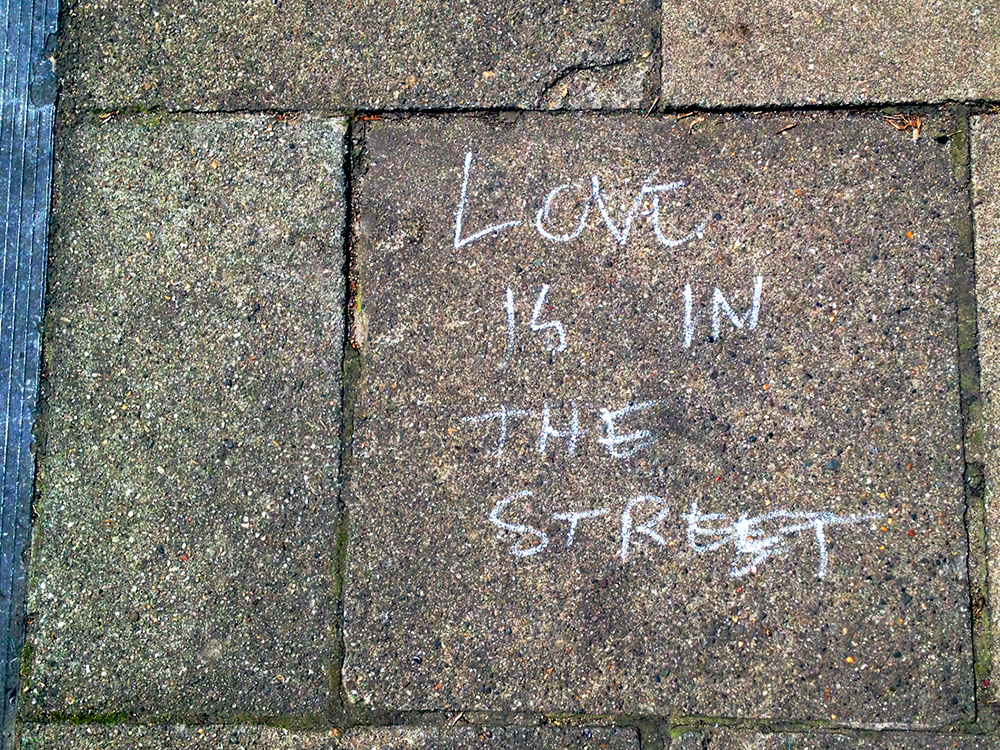 LOVE
IS IN
THE
STREET